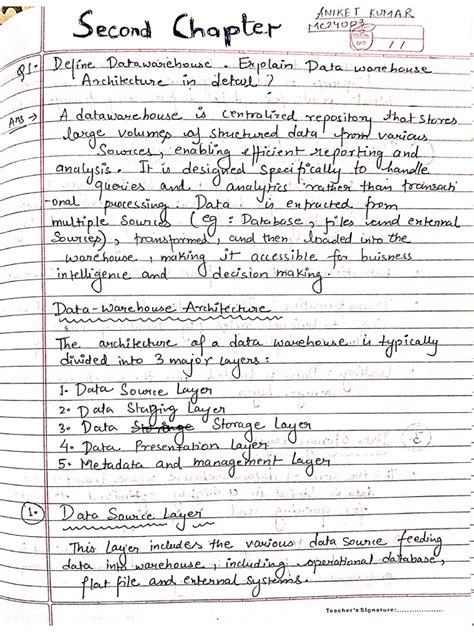 Second Chapter
ANIKET KUMAR
MC24003
Q1. Define Datawarehouse. Explain Data warehouse
Architecture in detail?
Ans → A datawarehouse is centralized repository that stores
large volumes of structured data from various
Sources, enabling efficient reporting and
analysis. It is designed specifically to handle
queries and analytics rather than transacti
-onal processing. Data is extracted from
multiple Sources (eg: Database, files and external
Sources), transformed, and then loaded into the
warehouse, making it accessible for buisness
intelligence and decision making.
Data-Warehouse Architecture
The architecture of a data warehouse is typically
divided into 3 major layers:
1. Data Source Layer
2. Data Staging Layer
3. Data Storage Storage Layer
4. Data Presentation Layer
5. Metadata and management Layer
1. Data Source Layer
This Layer includes the various data source feeding
data into warehouse, including operational database,
flat file and external systems.
Teacher's Signature: